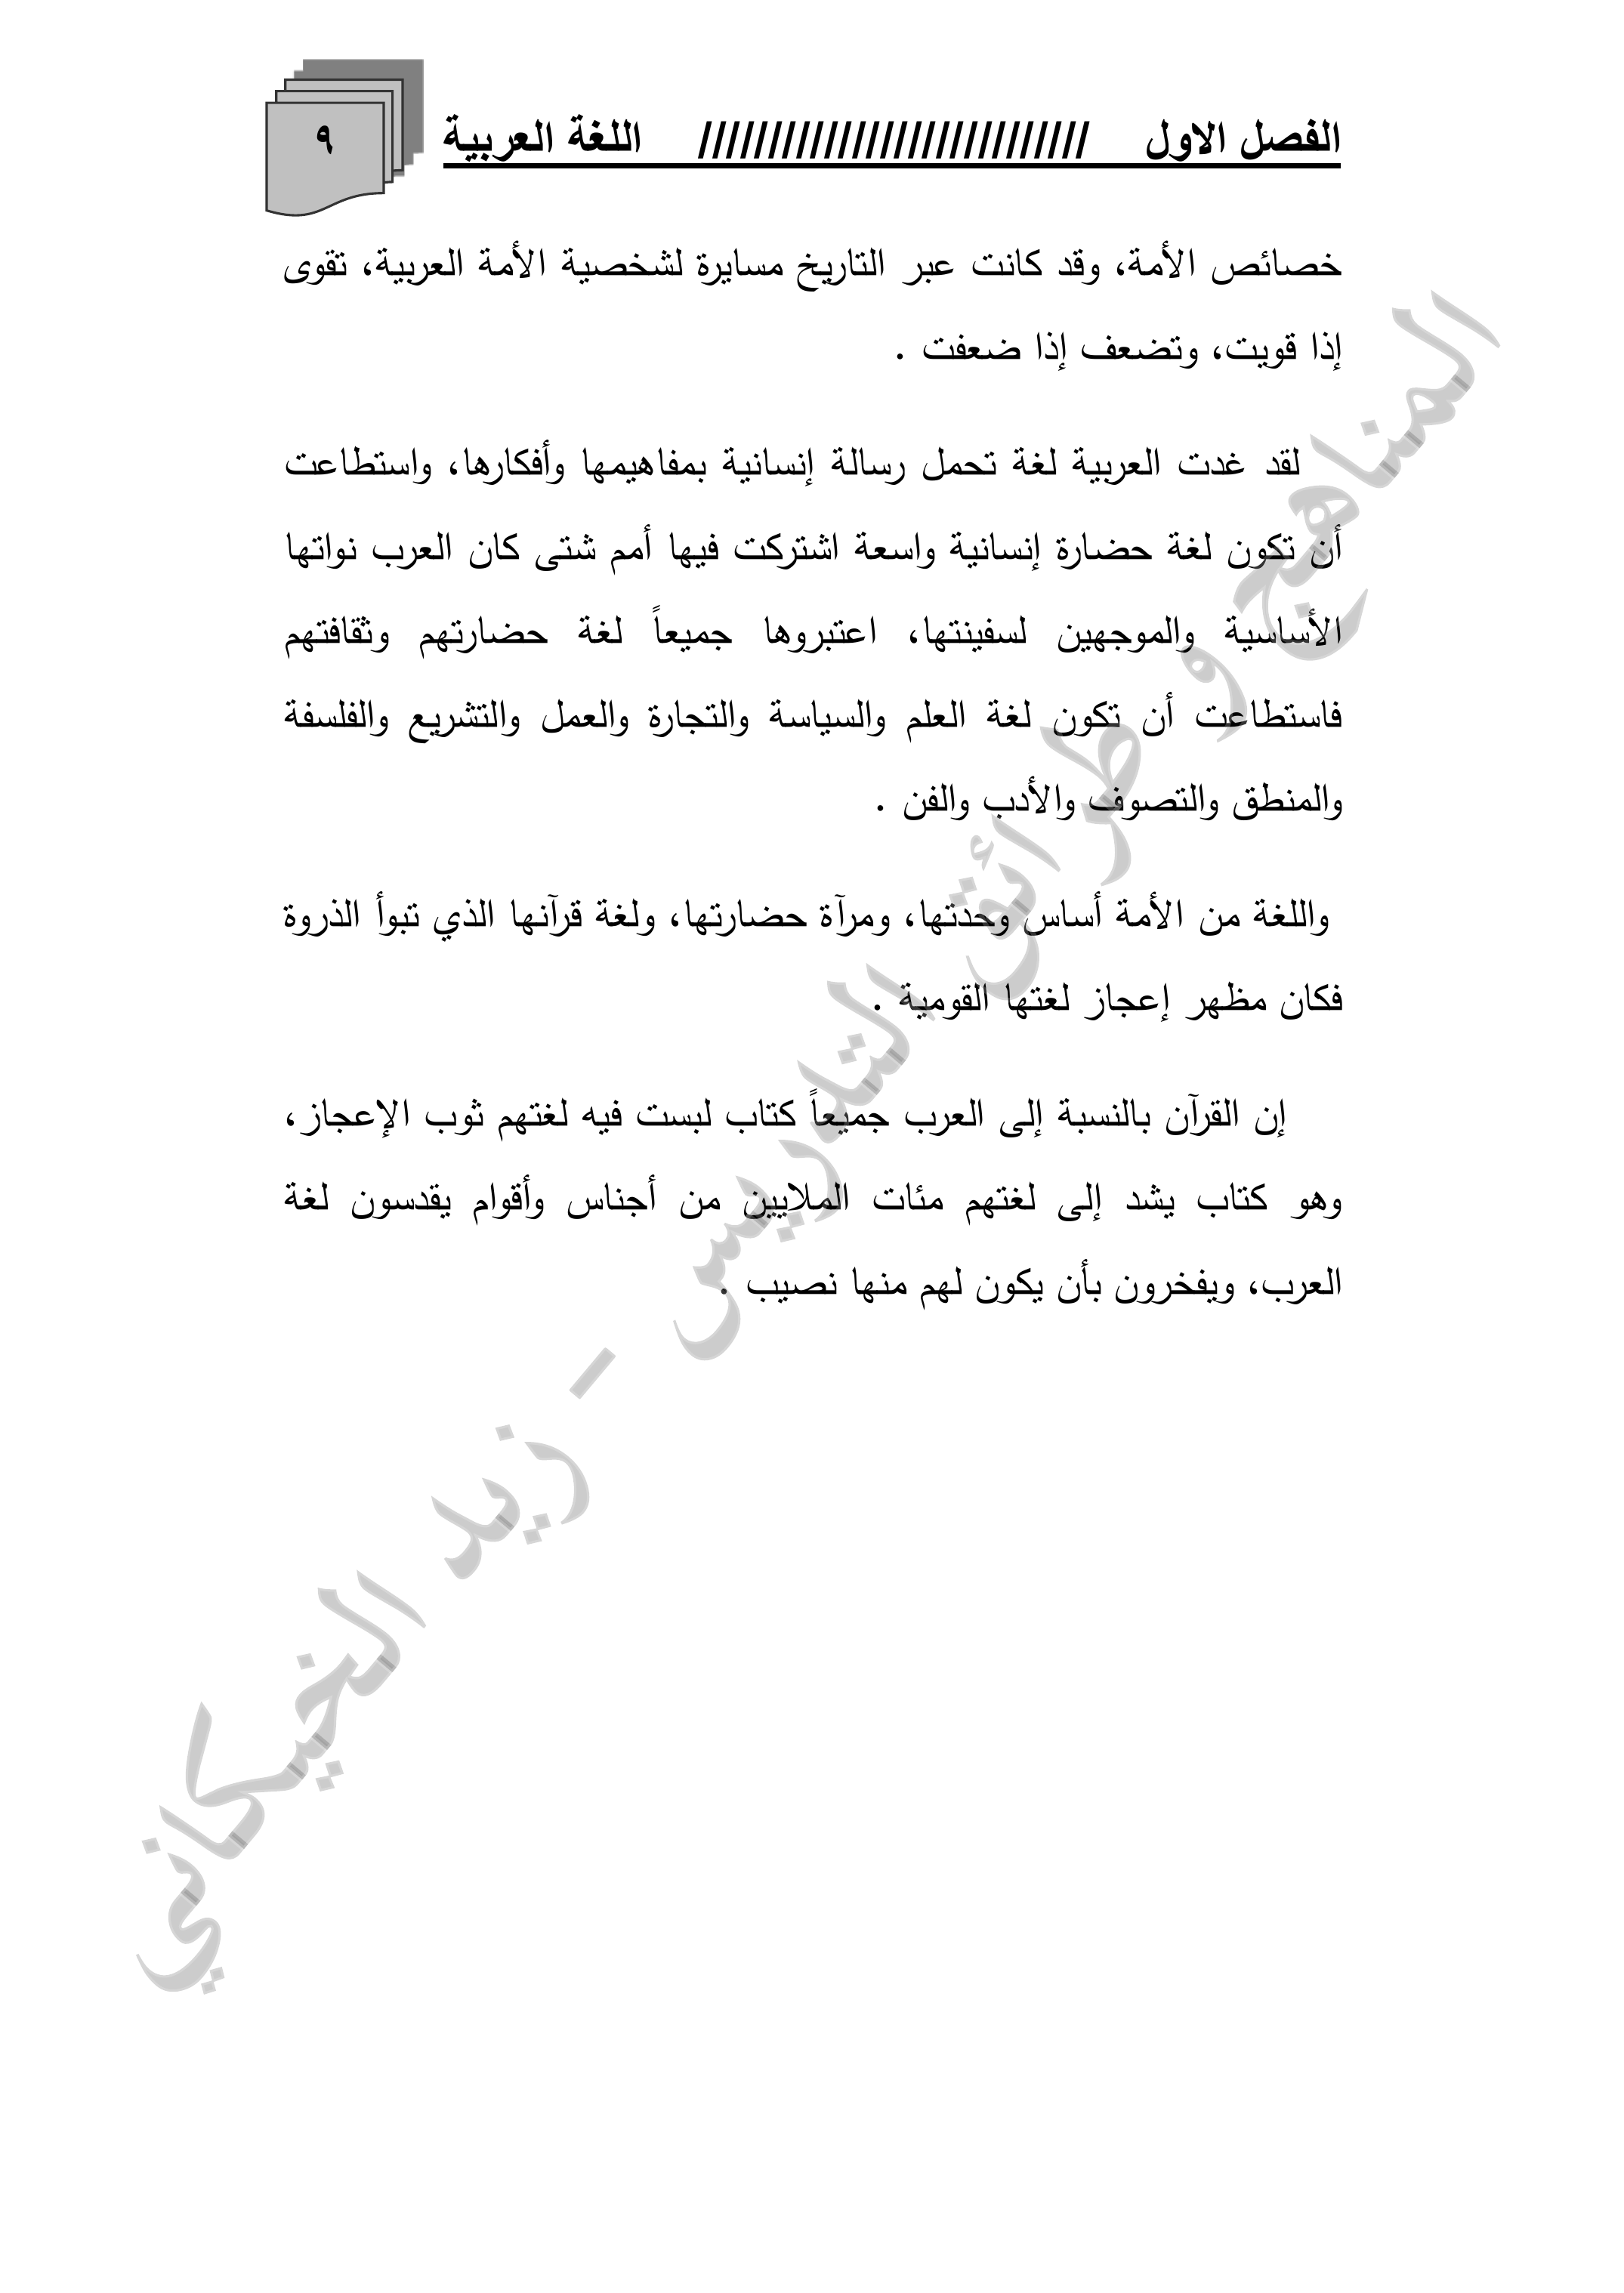 الفصل الاول //////////////////////////// اللغة العربية ٩
خصائص الأمة، وقد كانت عبر التاريخ مسايرة لشخصية الأمة العربية، تقوى
إذا قويت، وتضعف إذا ضعفت .
لقد غدت العربية لغة تحمل رسالة إنسانية بمفاهيمها وأفكارها، واستطاعت
أن تكون لغة حضارة إنسانية واسعة اشتركت فيها أمم شتى كان العرب نواتها
الأساسية والموجهين لسفينتها، اعتبروها جميعاً لغة حضارتهم وثقافتهم
فاستطاعت أن تكون لغة العلم والسياسة والتجارة والعمل والتشريع والفلسفة
والمنطق والتصوف والأدب والفن .
واللغة من الأمة أساس وحدتها، ومرآة حضارتها، ولغة قرآنها الذي تبوأ الذروة
فكان مظهر إعجاز لغتها القومية .
إن القرآن بالنسبة إلى العرب جميعاً كتاب لبست فيه لغتهم ثوب الإعجاز،
وهو كتاب يشد إلى لغتهم مئات الملايين من أجناس وأقوام يقدسون لغة
العرب، ويفخرون بأن يكون لهم منها نصيب .
المناهج و طرائق التدريس - زيد الخيكاني